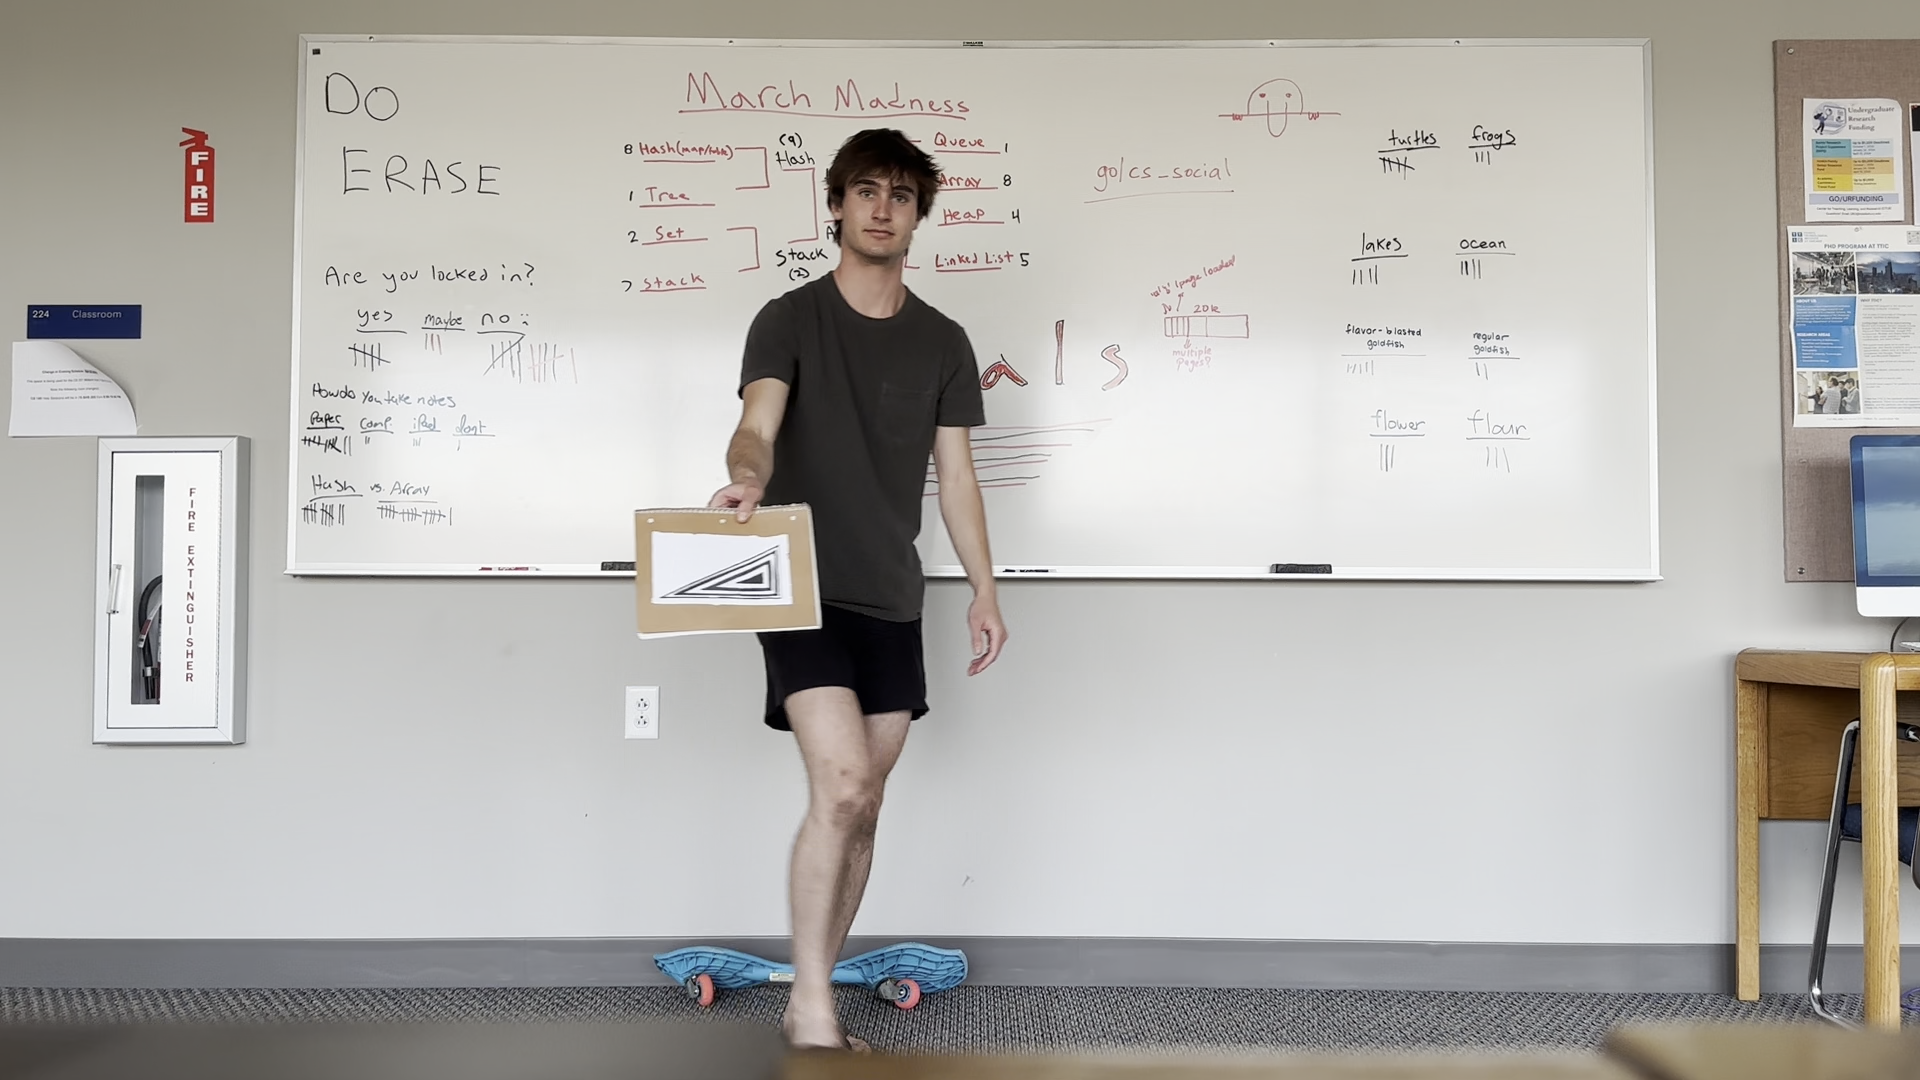 DO
ERASE
Are you locked in?
yes
maybe
no :
How do you take notes
Paper
comp.
iPad
don't
Hash vs. Array
March Madness
8 Hash(map/table)
1 Tree
2 Set
7 Stack
(9)
Hash
Stack
(2)
Queue 1
Array 8
Heap 4
Linked List 5
a l s
go/cs_social
20k
multiple
pages?
turtles
frogs
lakes
ocean
flavor-blasted
goldfish
regular
goldfish
flower
flour
FIRE
224 Classroom
FIRE EXTINGUISHER
Undergraduate
Research
Funding
GO/URFUNDING
PHD PROGRAM AT TTIC